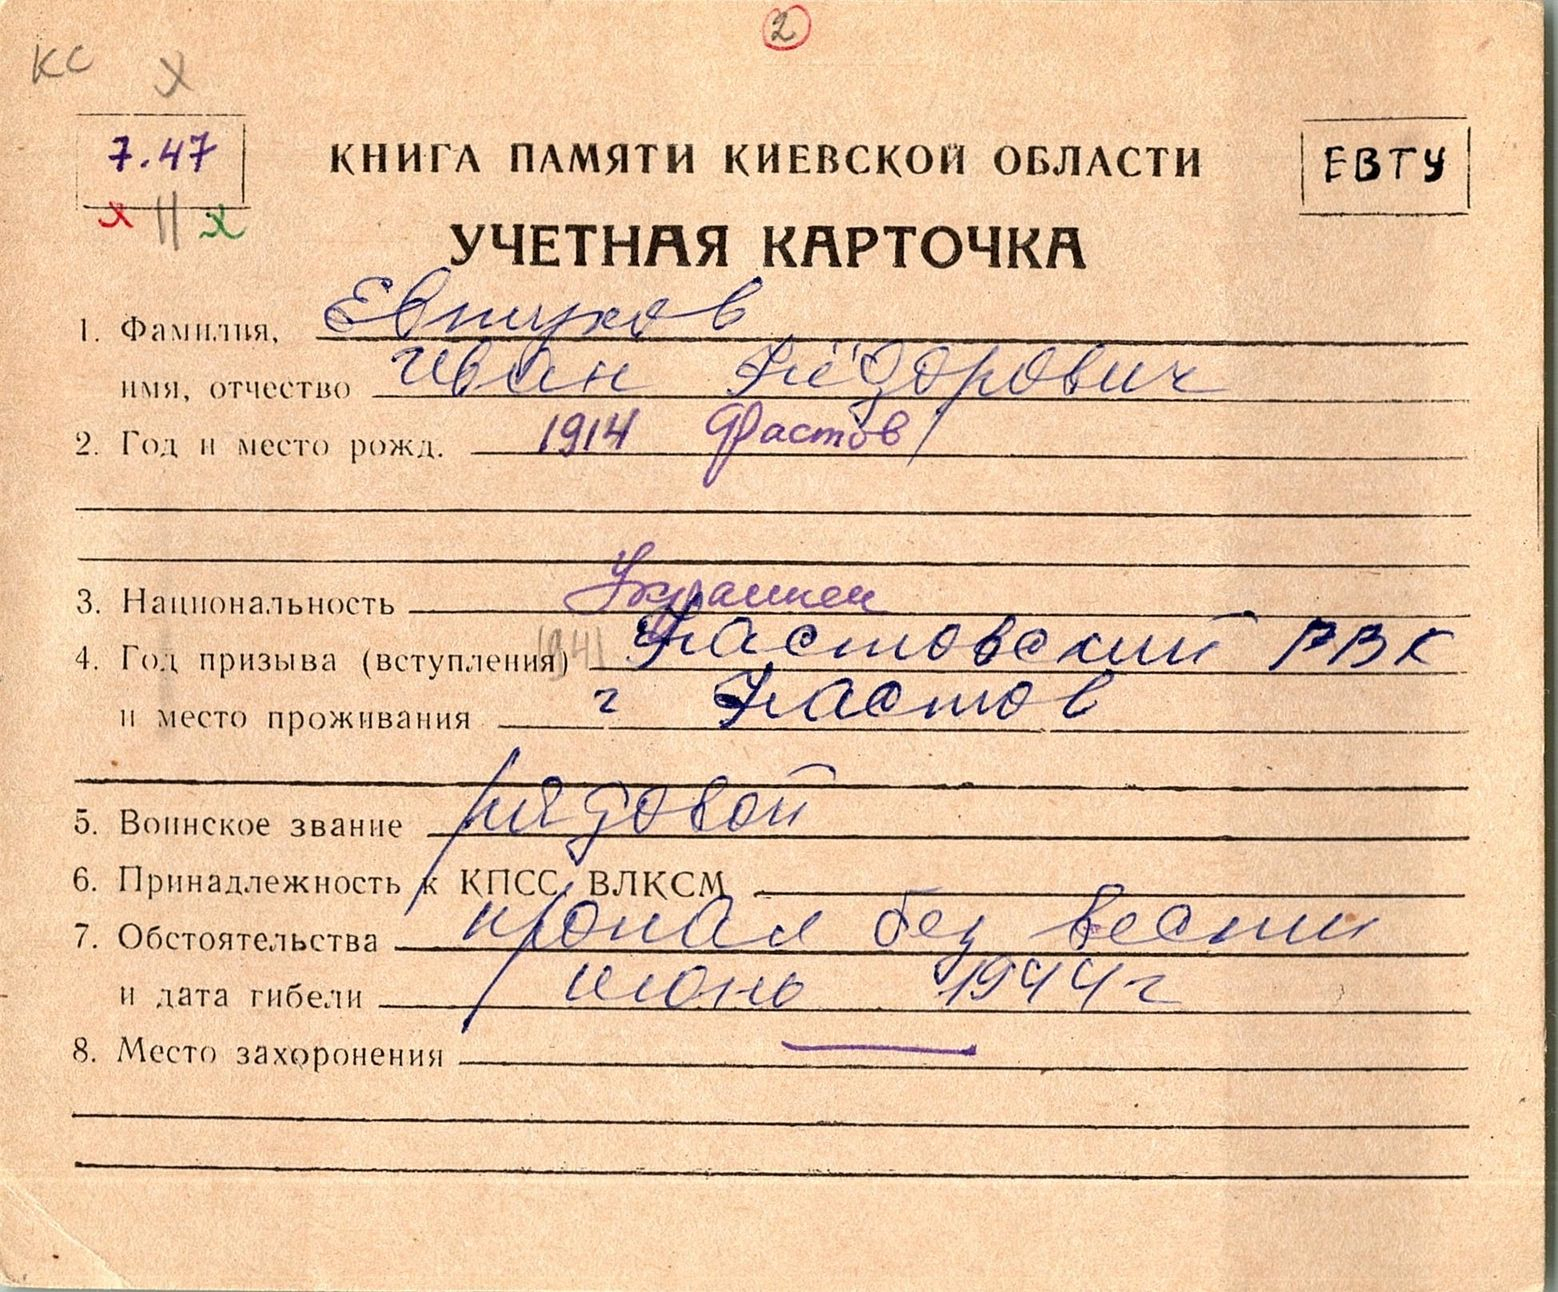 2
КС х
7.47
КНИГА ПАМЯТИ КИЕВСКОЙ ОБЛАСТИ
ЕВТУ
х || х
УЧЕТНАЯ КАРТОЧКА
1. Фамилия, Евтухов
имя, отчество Иван Фёдорович
2. Год и место рожд. 1914 Фастов
3. Национальность Украинец
4. Год призыва (вступления) 1941 Фастовский РВК
и место проживания г Фастов
5. Воинское звание рядовой
6. Принадлежность к КПСС, ВЛКСМ
7. Обстоятельства пропал без вести
и дата гибели июнь 1944 г
8. Место захоронения —